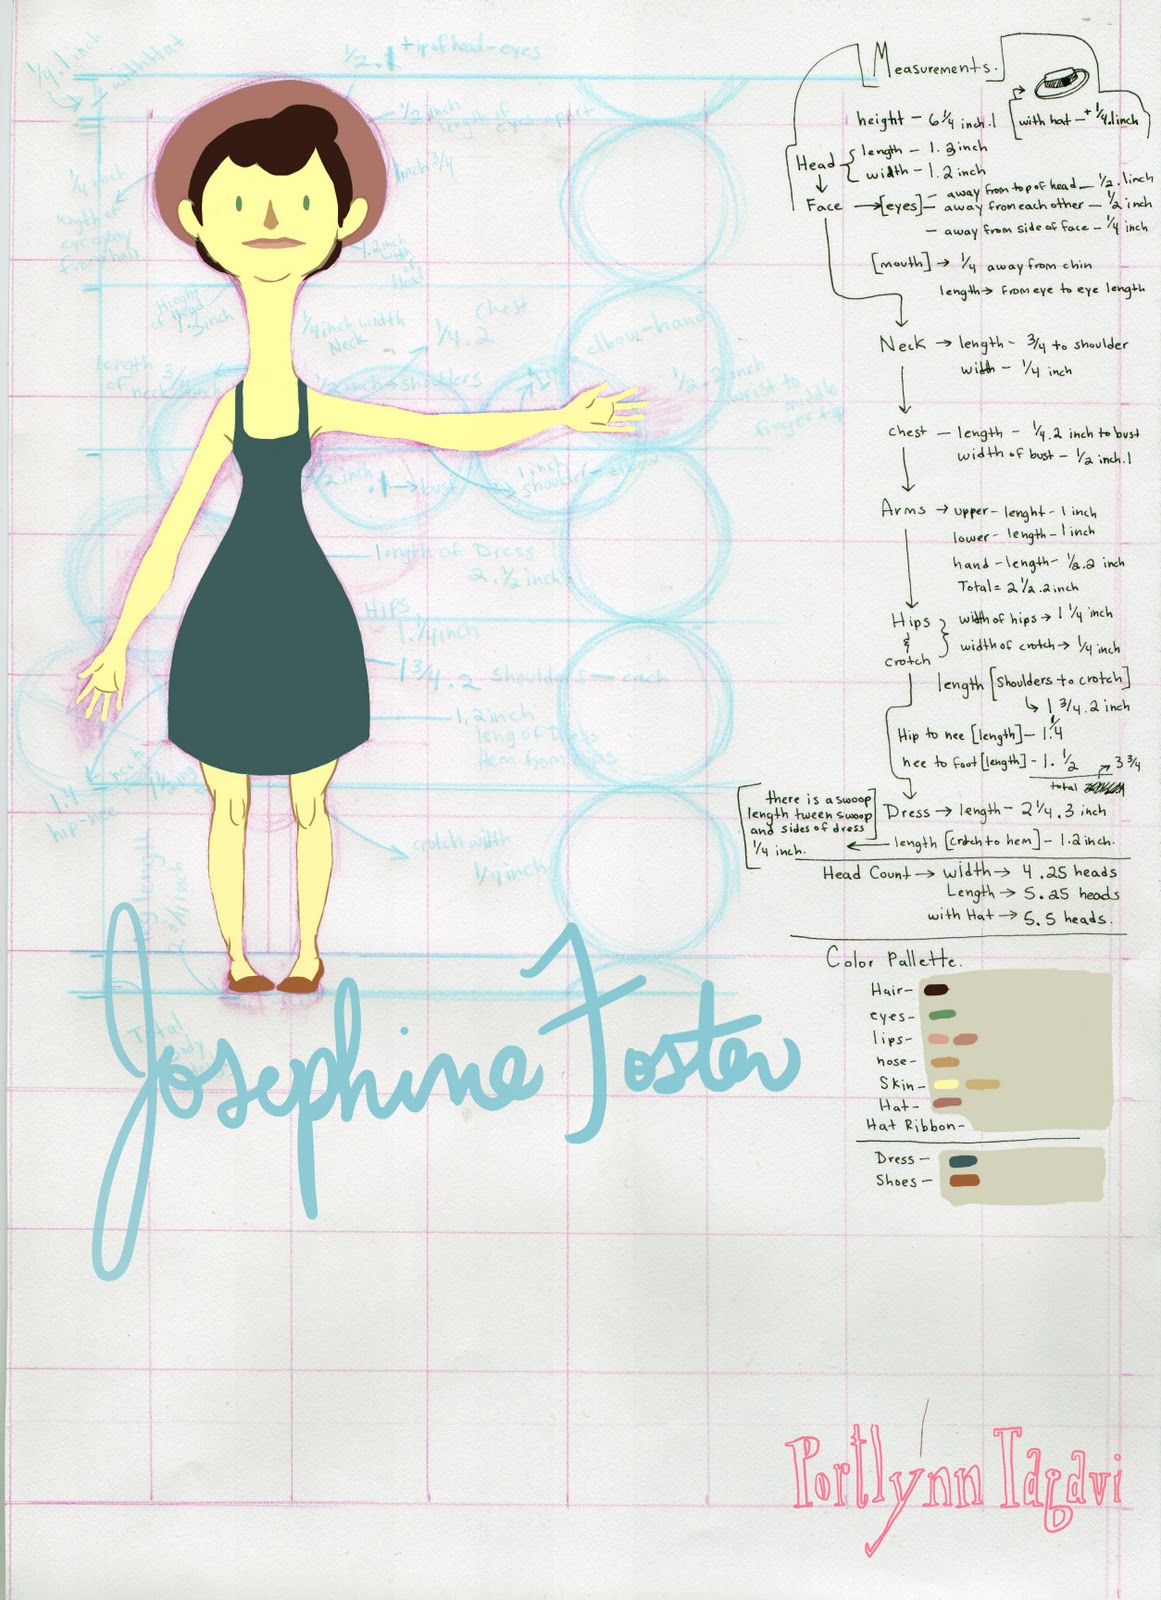 Measurements.
height - 6 1/4 inch.1
with hat - + 1/4.1inch
Head
length - 1.3inch
width - 1.2 inch
Face
[eyes] - away from top of head - 1/2.1inch
- away from each other - 1/2 inch
- away from side of face - 1/4 inch
[mouth] → 1/4 away from chin
length → from eye to eye length
Neck → length - 3/4 to shoulder
width - 1/4 inch
chest - length - 1/4.2 inch to bust
width of bust - 1/2 inch.1
Arms → upper - lenght - 1 inch
lower - length - 1 inch
hand - length - 1/2.2 inch
Total = 2 1/2.2inch
Hips
&
crotch
width of hips → 1 1/4 inch
width of crotch → 1/4 inch
length [shoulders to crotch]
↳ 1 3/4.2 inch
Hip to nee [length] - 1.1/4
nee to foot [length] - 1.1/2 → 3 3/4
total
Dress → length - 2 1/4.3 inch
length [crotch to hem] - 1.2inch.
there is a swoop
length tween swoop
and sides of dress
1/4 inch.
Head Count → width → 4.25 heads
Length → 5.25 heads
with Hat → 5.5 heads.
Color Pallette.
Hair -
eyes -
lips -
nose -
Skin -
Hat -
Hat Ribbon -
Dress -
Shoes -
1/4.1inch
with Hat
1/2.1 tip of head - eyes
1/2 inch
length of
eyes apart
1/4 inch
length of
eye away
from hair
inch 3/4
1.2inch
width
of
Head
Height
of Head
.3inch
1/4inch width
Neck
Chest
1/4.2
elbow-hand
length
of neck 3/4 inch
1/2 inch → shoulders
1/2.2 inch
wrist to
middle
finger tip
1/2 inch
.1 → bust
1 inch
shoulder - elbow
length of Dress
2.1/2inch
Hips
1.1/4inch
1 3/4.2 shoulders - crach
1.2inch
leng of Dress
Hem from hips
1.4
hip-nee
nee to
1 1/2
crotch width
1/4inch
leg length
2 3/4 inch
Total
Body
Josephine Foster
Portlynn Tagavi